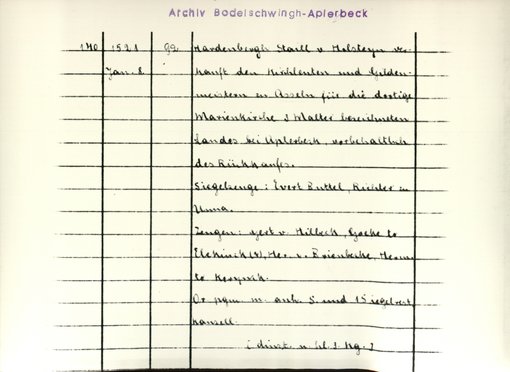 Archiv Bodelschwingh-Aplerbeck
140 1521 99 Hardenbergh Staell v Holsteyn ver-
Jan. 8 kauft den Kirchleuten und Gilden-
meistern zu Asseln für die dortige
Marienkirche 3 Malter bezeichneten
Landes bei Aplerbeck, vorbehaltlich
des Rückkaufes.
Siegelzeuge: Evert Buttel, Richter zu
Unna.
Zeugen: Gert v. Hilbeck, Goeke to
Her. v. Brienberke, Herm
to
Or pgm m. anh. S. und 1 Siegelrest,
kanzell.